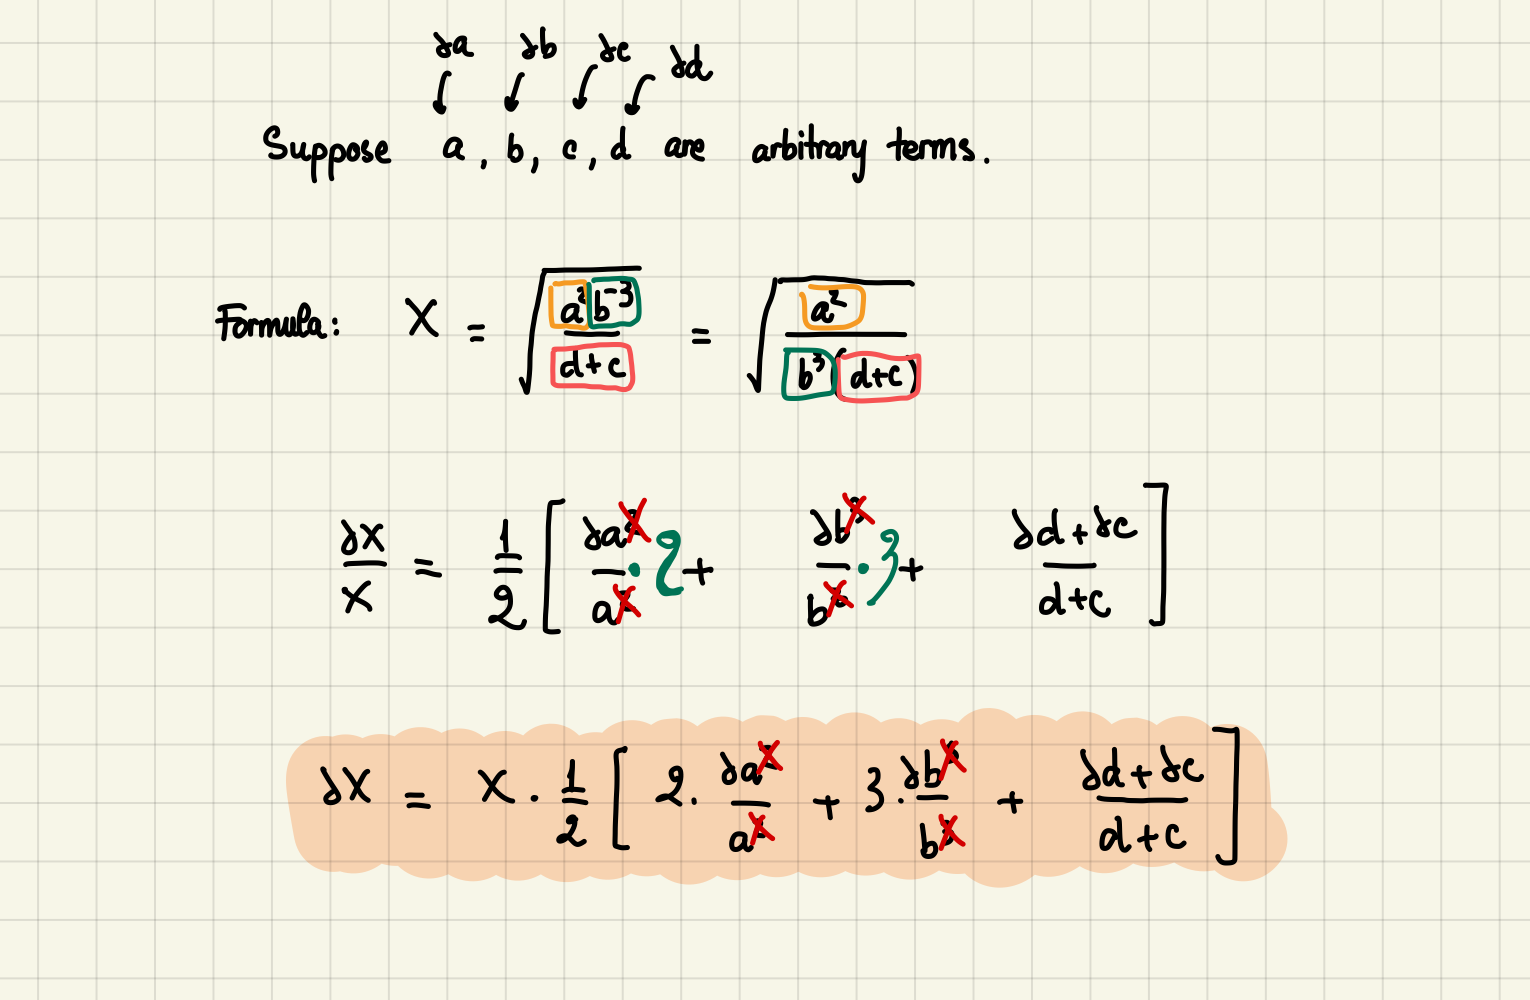 δa δb δc δd
Suppose a, b, c, d are arbitrary terms.
Formula: X = √(a²b⁻³ / d+c) = √(a² / b³(d+c))
δX/X = 1/2 [ δa/a · 2 + δb/b · 3 + δd+δc / d+c ]
δX = X · 1/2 [ 2 · δa/a + 3 · δb/b + δd+δc / d+c ]